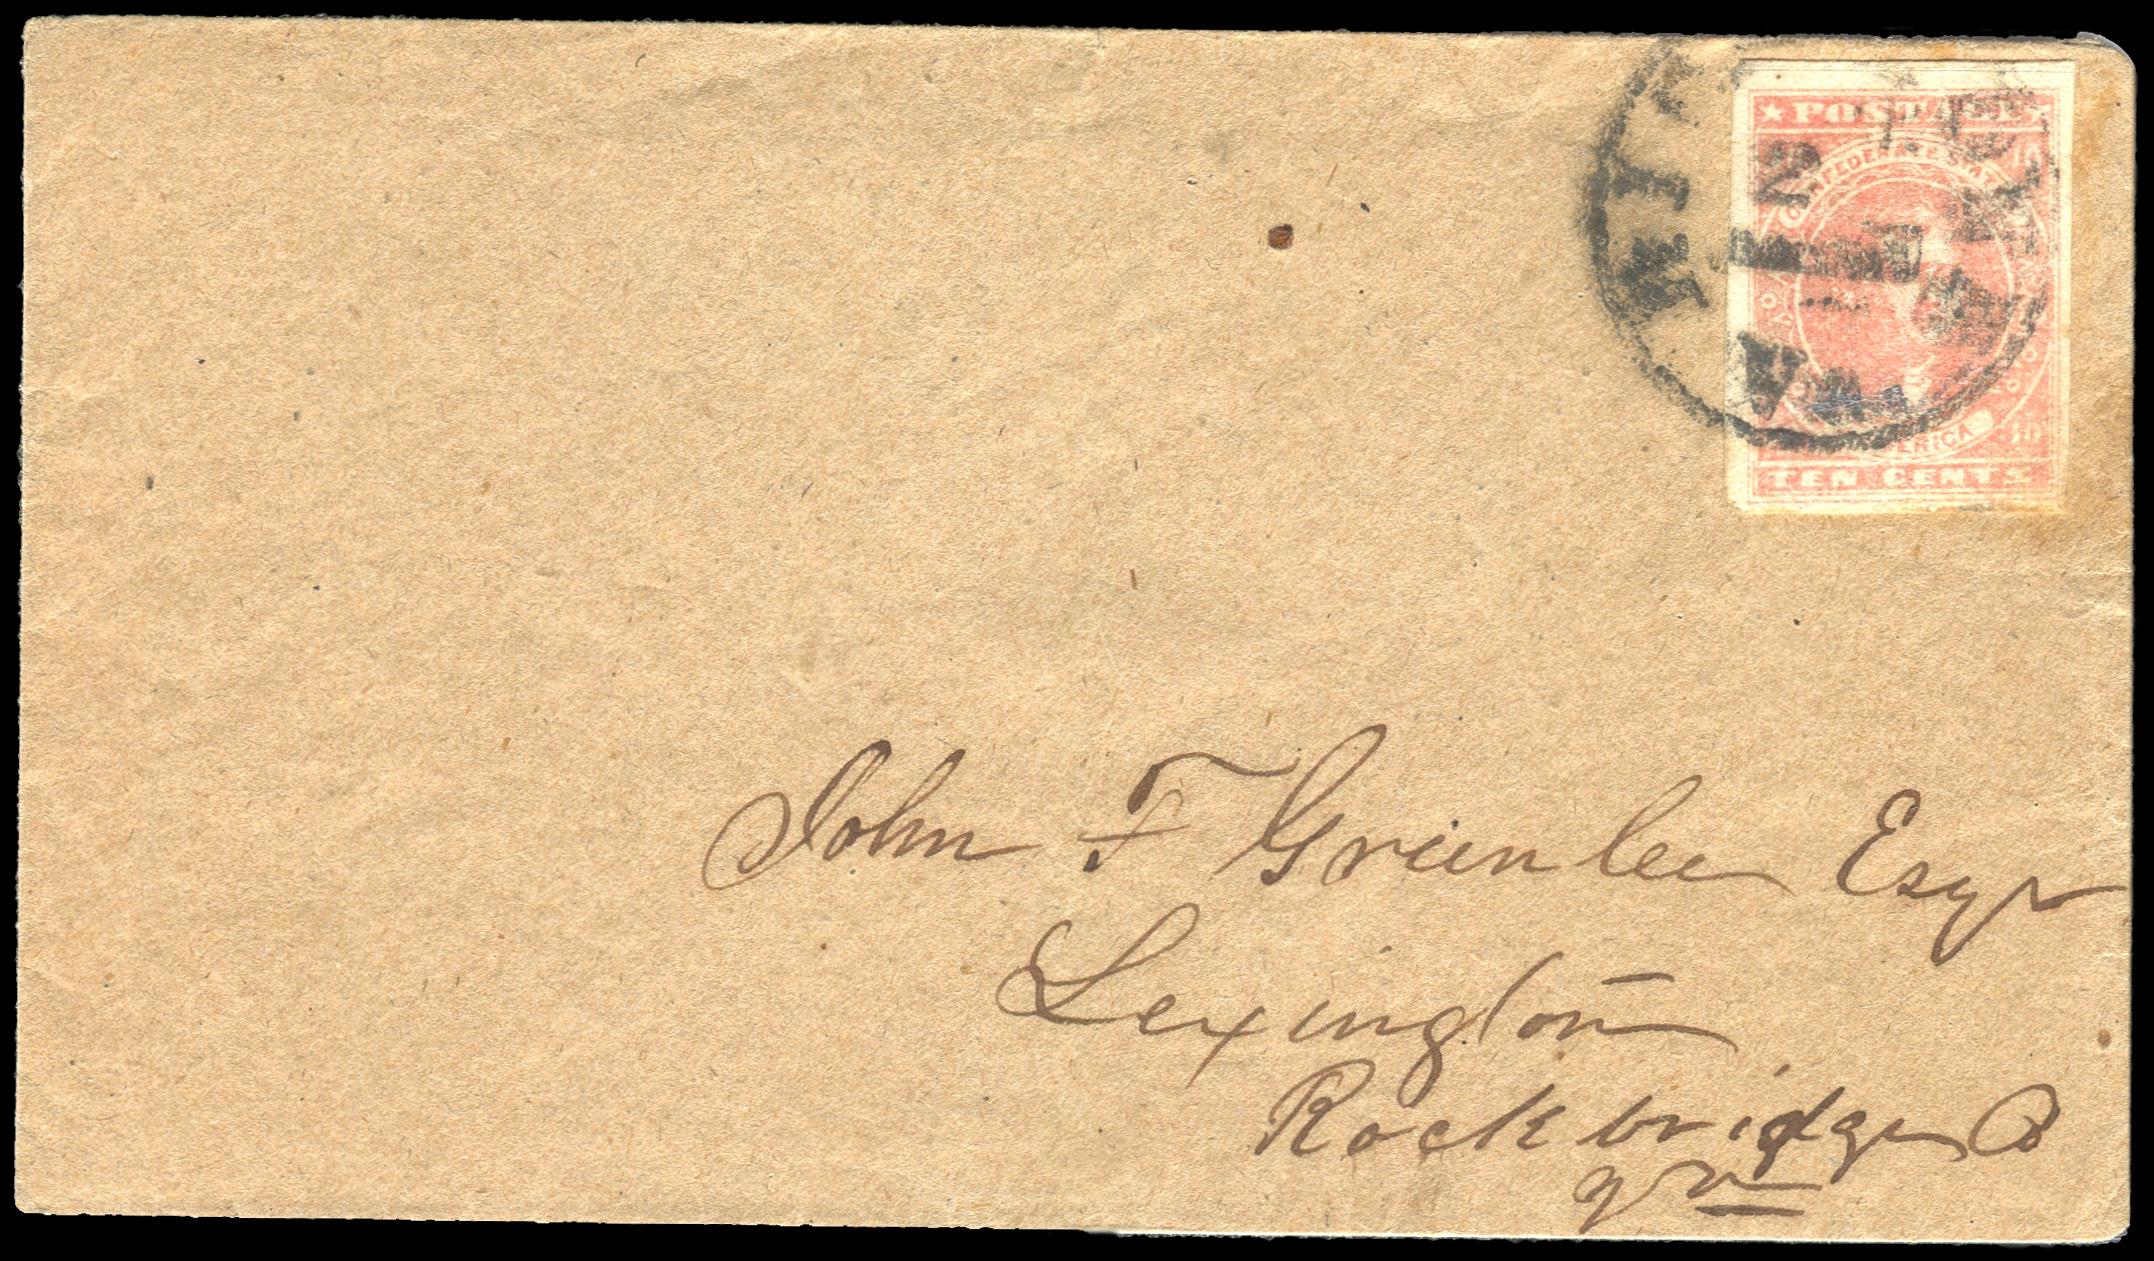 POSTAGE
CONFEDERATE STATES
AMERICA
10
TEN CENTS.
VA
John F Greenlee Esqr
Lexington
Rockbridge Co
Va